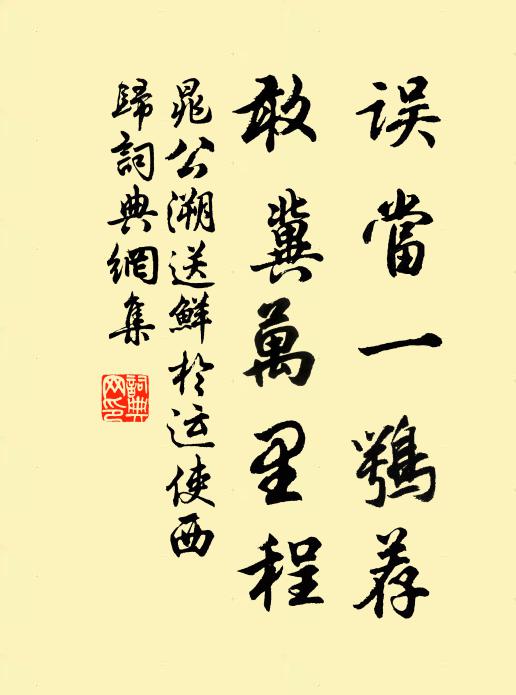 误當一鶚荐
敢冀萬里程
晁公溯送鮮於运使西
歸詞典網集
詞典网印